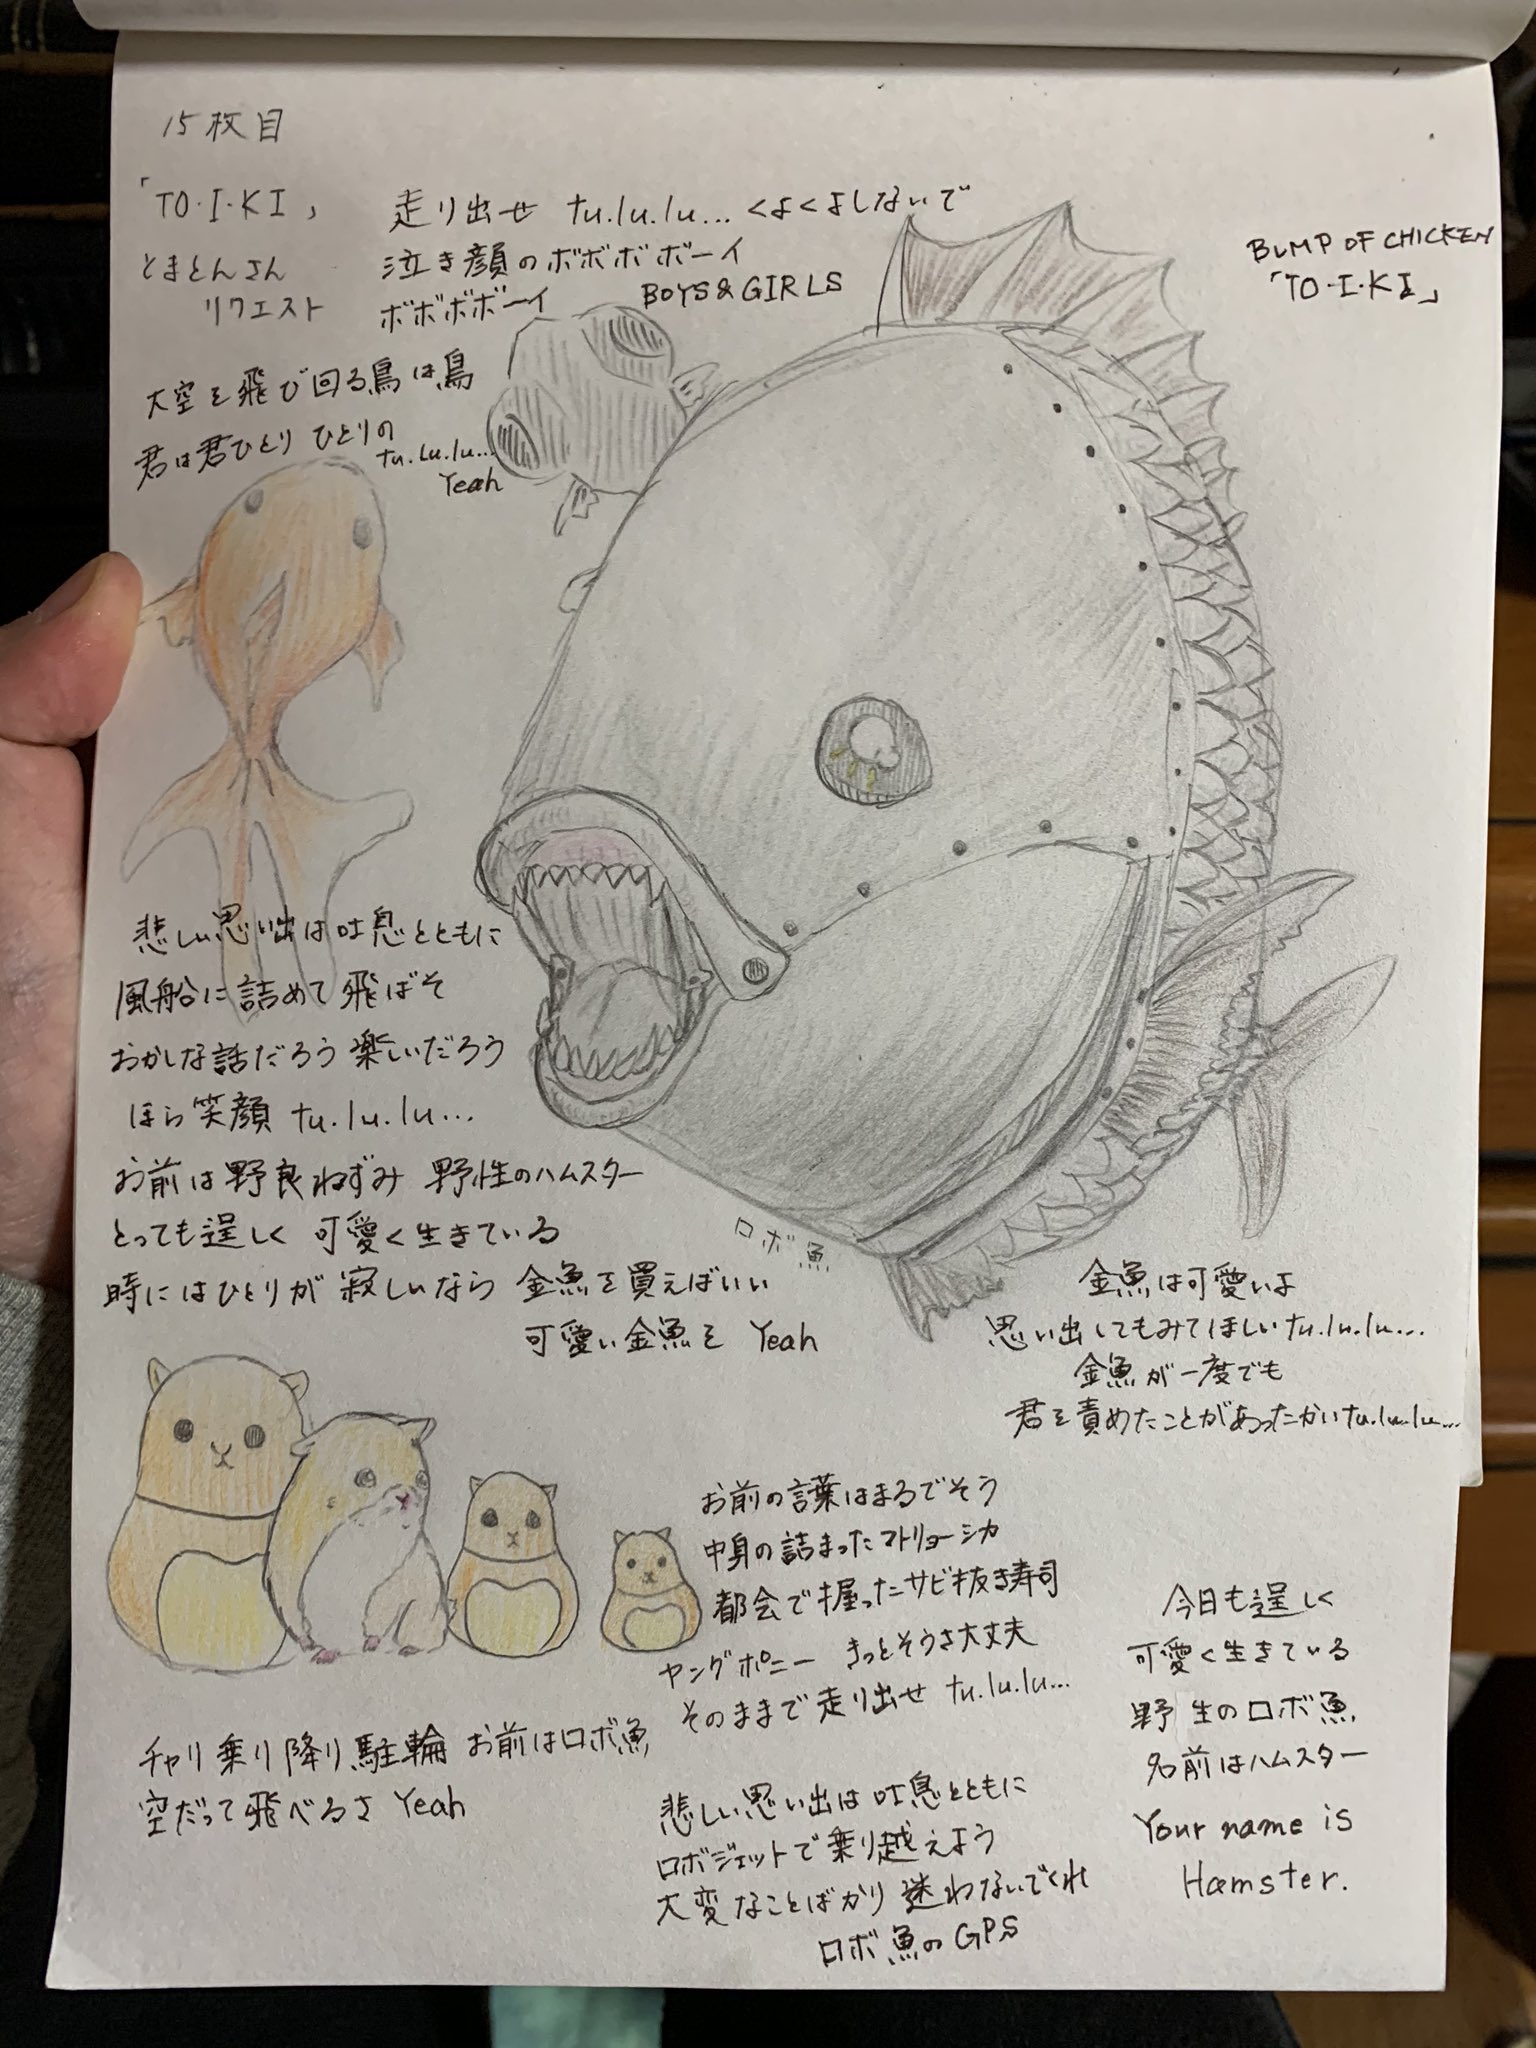 15枚目
「TO・I・KI」
とまとんさん
リクエスト
BUMP OF CHICKEN
「TO・I・KI」
走り出せ tu.lu.lu... くよくよしないで
泣き顔のボボボボーイ
ボボボボーイ BOYS&GIRLS
大空を飛び回る鳥は鳥
君は君ひとり ひとりの
tu.lu.lu...
Yeah
悲しい思い出は吐息とともに
風船に詰めて飛ばそ
おかしな話だろう 楽しいだろう
ほら笑顔 tu.lu.lu...
お前は野良ねずみ 野性のハムスター
とっても逞しく 可愛く生きている
時にはひとりが 寂しいなら 金魚を買えばいい
可愛い金魚を Yeah
ロボ魚
金魚は可愛いよ
思い出してもみてほしいtu.lu.lu...
金魚が一度でも
君を責めたことがあったかいtu.lu.lu...
お前の言葉はまるでそう
中身の詰まったマトリョーシカ
都会で握ったサビ抜き寿司
ヤングポニー きっとそうさ大丈夫
そのままで走り出せ tu.lu.lu...
チャリ乗り降り駐輪 お前はロボ魚
空だって飛べるさ Yeah
悲しい思い出は 吐息とともに
ロボジェットで乗り越えよう
大変なことばかり 迷わないでくれ
ロボ魚のGPS
今日も逞しく
可愛く生きている
野生のロボ魚
名前はハムスター
Your name is
Hamster.